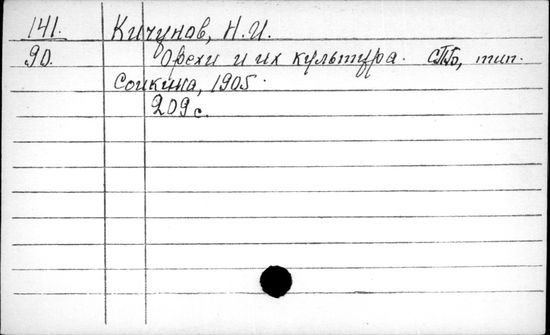 141. Кичунов, Н.И.
90. Орехи и их культура. СПб, тип.
Сойкина, 1905.
209 с.